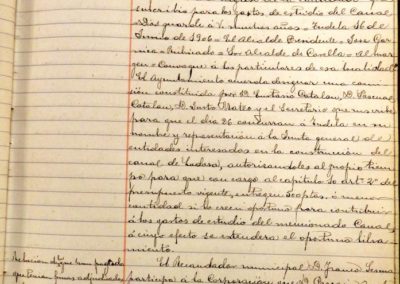 suscribir para los gastos de estudio del Canal
Dios guarde á V. muchos años - Tudela 16 de
Junio de 1906 - El Alcalde Presidente - José Gar-
nica - Rubricado - Sor Alcalde de Corella - Al mar-
gen - Convoque á los particulares de esa localidad
El Ayuntamiento acuerda designar una comi-
sión constituida por D. Catalan, D. Pascual
Catalan, D. Santos y el Secretario que suscribe
para que el dia 26 concurran á Tudela en su
nombre y representación á la Junta general de
entidades interesadas en la construcción del
canal de Lodosa, autorizandoles al propio tiem-
po para que con cargo al capítulo art.º del
presupuesto vigente, entreguen ptas, ó menor
cantidad si lo creen oportuno para contribuir
á los gastos de estudio del mencionado Canal,
á cuyo efecto se extenderá el oportuno libra-
miento.
El Recaudador municipal D. Franco Sesma
participa á la Corporación que D.
Relación
que fincas adjudicadas